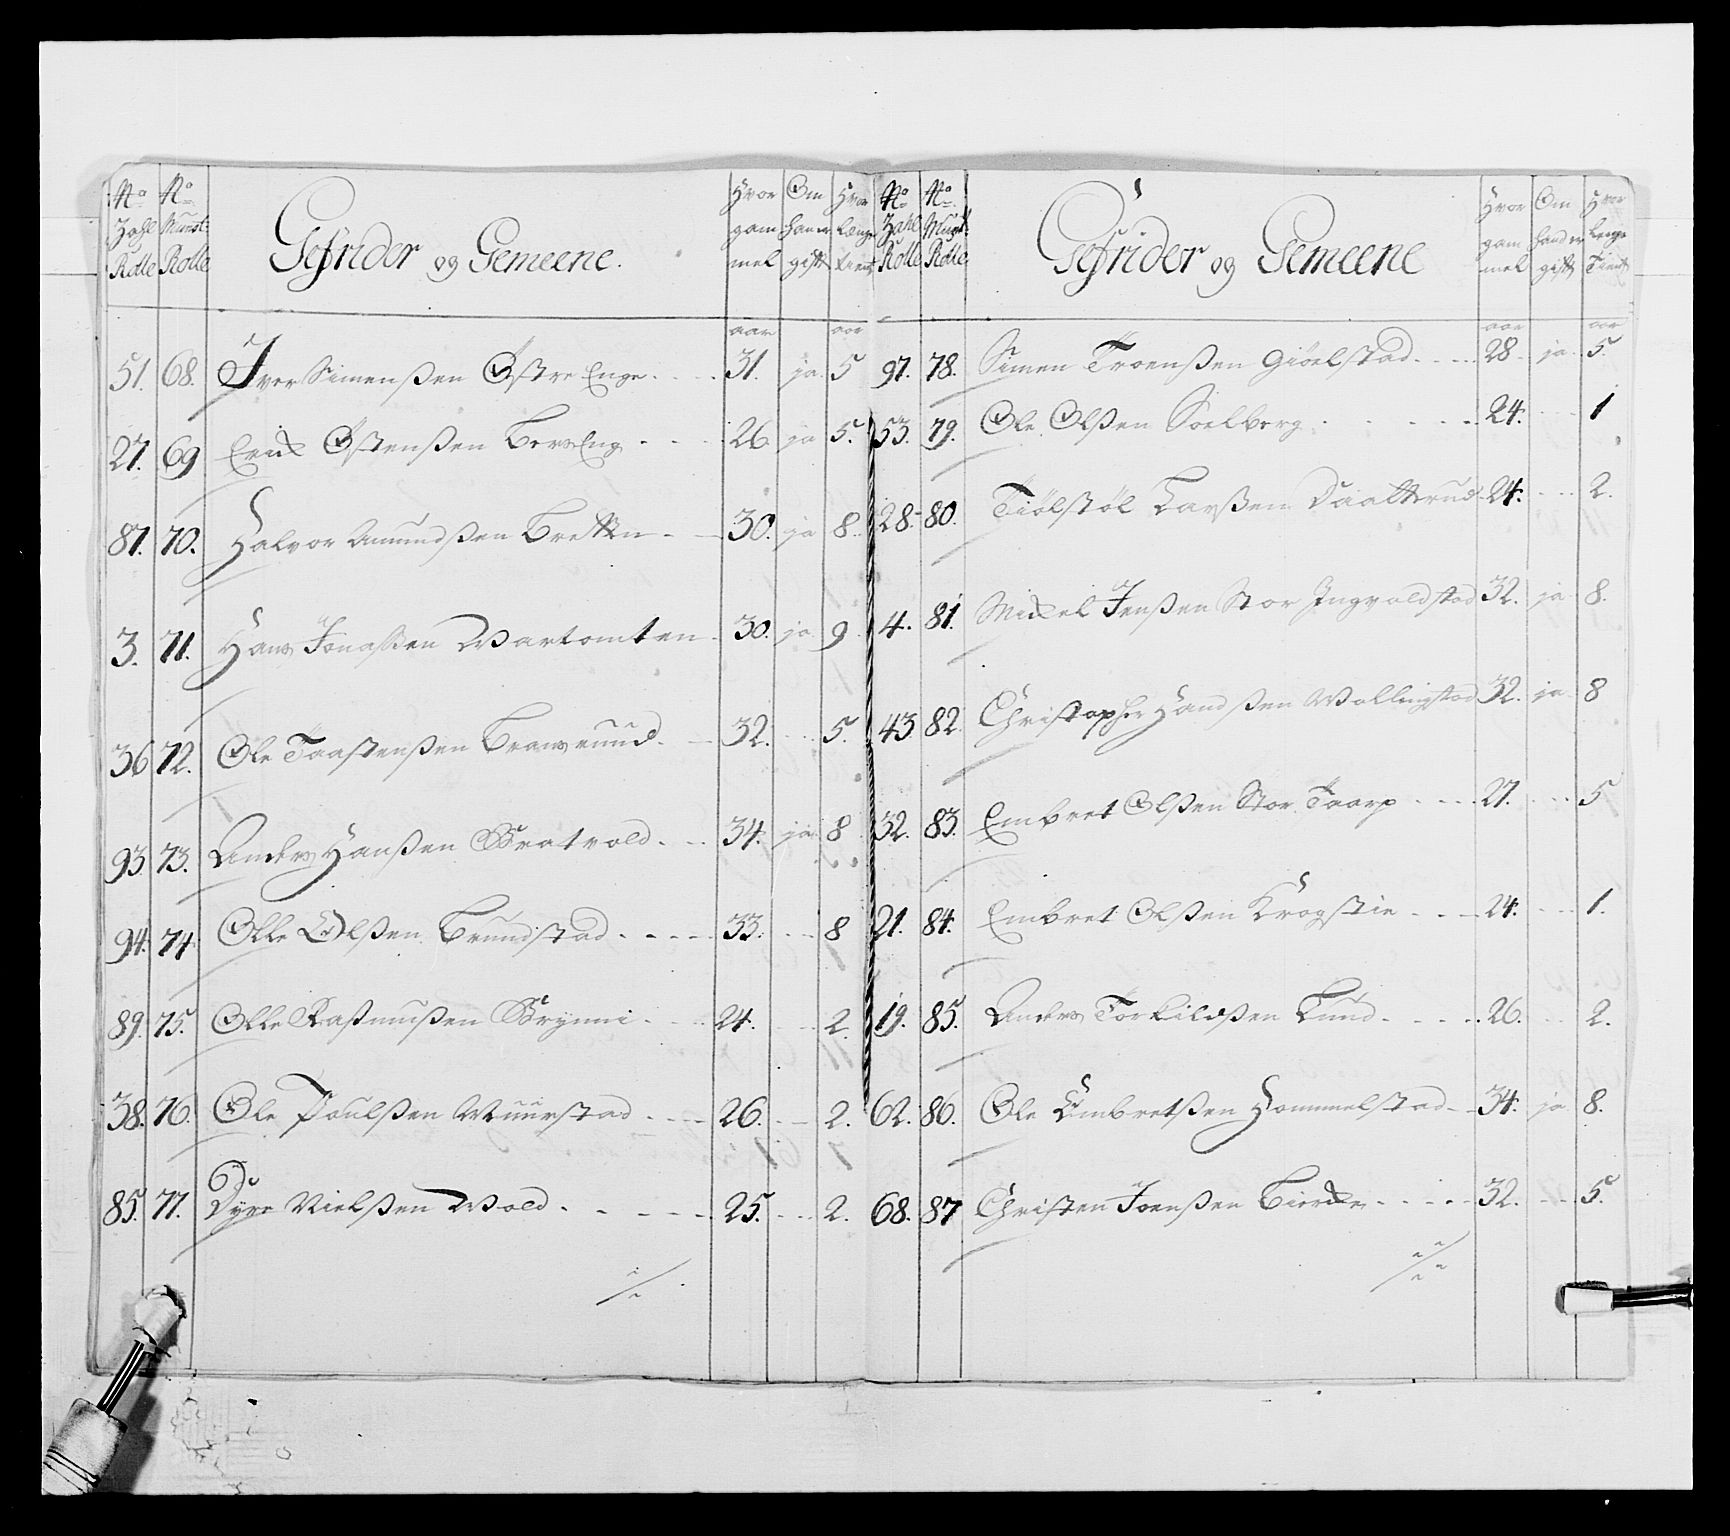 No Zahl Rolle | No Munst: Rolle | Gefrider og Gemeene. | Hvor gam mel | Om hand er gift | Hvor længe tient
aar aar
51. 68. Iver Simenßen Østre Enge 31. ja 5
27. 69 Erich Østenßen BersEng 26 ja 5.
87. 70. Halvor Amundßen Brekken 30. ja 8.
3. 71. Hans Jonaßen Wartomten 30. ja. 9
36 72. Ole Taastenßen 32. 5.
93 73. Anders Hanßen Bratvold 34. ja 8
94. 74. Olle Olßen Brundstad 33. 8
89. 75. Olle Rasmußen Brynni 24. 2.
38. 76. Ole Poulßen Muurstad 26. 2.
85. 77. Dyre Nielßen Wold 25. 2.
No Zahl Rolle | No Munst: Rolle | Gefrider og Gemeene | Hvor gam mel | Om hand er gift | Hvor lenge Tient
aar aar
97. 78. Simen Troenßen Giøelstad 28 ja 5.
53. 79. Ole Olßen Soelberg 24. 1
28. 80. Tiølstøl Larßen 24. 2.
4. 81. Michel Jenßen Stor Ingvoldstad 32. ja 8.
43 82. Christopher Handßen Wollingstad 32. ja 8
32. 83. Embret Olßen Stor Taarp 27. 5
21. 84. Embret Olßen Krogstie 24. 1.
19. 85. Anders Torkildßen Lund 26. 2.
62. 86. Ole Embretßen Hommelstad 34. ja 8.
68. 87 Christen Joenßen Bierche 32. 5.